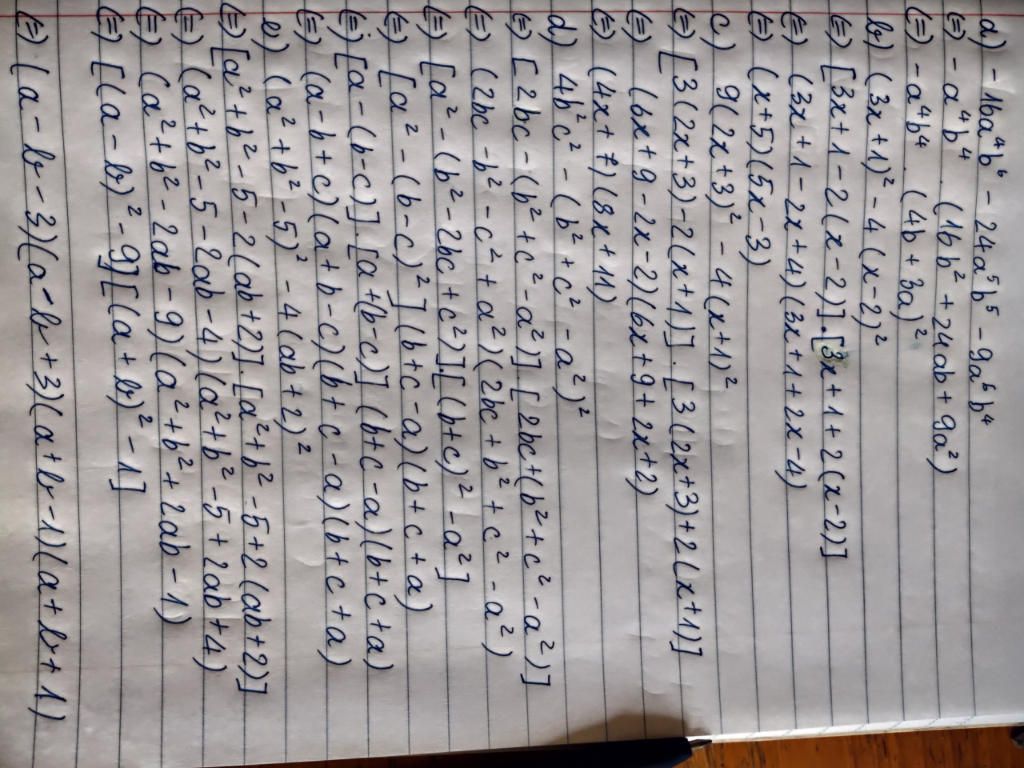 a) - 16a⁴b⁶ - 24a⁵b⁵ - 9a⁶b⁴
(=) - a⁴b⁴ . (16b² + 24ab + 9a²)
(=) - a⁴b⁴ . (4b + 3a)²
b) (3x + 1)² - 4(x-2)²
(=) [3x + 1 - 2(x-2)].[3x + 1 + 2(x-2)]
(=) (3x + 1 - 2x + 4)(3x + 1 + 2x - 4)
(=) (x+5)(5x-3)
c) 9(2x+3)² - 4(x+1)²
(=) [3(2x+3) - 2(x+1)] . [3(2x+3) + 2(x+1)]
(=) (6x + 9 - 2x - 2)(6x + 9 + 2x + 2)
(=) (4x + 7)(8x + 11)
d) 4b²c² - (b² + c² - a²)²
(=) [2bc - (b² + c² - a²)] . [2bc + (b² + c² - a²)]
(=) (2bc - b² - c² + a²)(2bc + b² + c² - a²)
(=) [a² - (b² - 2bc + c²)].[(b+c)² - a²]
(=) [a² - (b-c)²](b+c-a)(b+c+a)
(=) [a - (b-c)].[a + (b-c)](b+c-a)(b+c+a)
(=) (a-b+c)(a+b-c)(b+c-a)(b+c+a)
e) (a² + b² - 5)² - 4(ab+2)²
(=) [a² + b² - 5 - 2(ab+2)].[a² + b² - 5 + 2(ab+2)]
(=) (a² + b² - 5 - 2ab - 4)(a² + b² - 5 + 2ab + 4)
(=) (a² + b² - 2ab - 9)(a² + b² + 2ab - 1)
(=) [(a-b)² - 9][(a+b)² - 1]
(=) (a - b - 3)(a - b + 3)(a + b - 1)(a + b + 1)